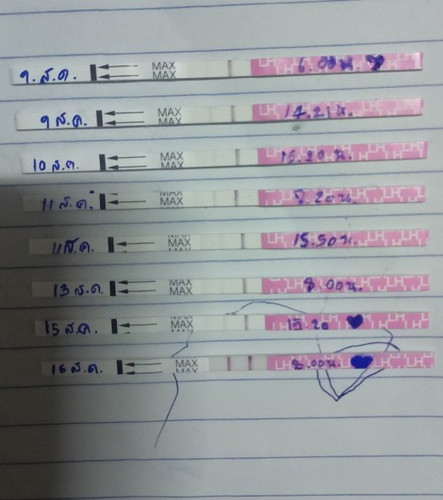 9 ส.ค. MAX MAX LH 6.00น
9 ส.ค. MAX MAX LH 14.21น.
10 ส.ค. MAX MAX LH
11 ส.ค. MAX MAX LH
11 ส.ค. MAX LH 15.50น.
13 ส.ค. MAX MAX LH 8.00น.
15 ส.ค. MAX LH
16 ส.ค. MAX MAX LH 8.00น.